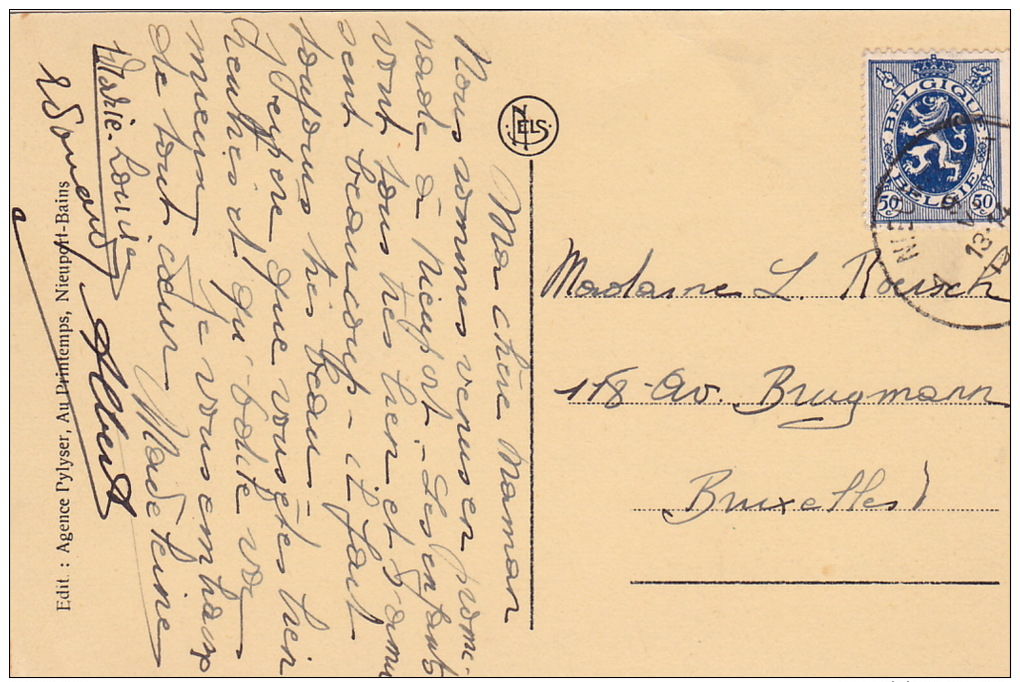 Ma chère Maman
Nous sommes venus en prome-
nade à Nieuport - Les enfants
vont tous très bien et s'amu
sent beaucoup - il fait
toujours très beau -
J'espère que vous êtes bien
rentrés et qu'Odile va
mieux - Je vous embrasse
de tout cœur Madeleine
Marie-Louise
Edouard
Albert
Edit. : Agence Pylyser, Au Printemps, Nieuport-Bains
NELS
BELGIQUE
BELGIE
50 c 50 c
Madame L. Roersch
178 Av. Brugmann
Bruxelles